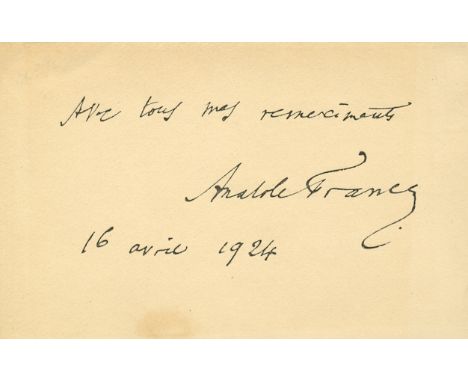 Avec tous mes remerciments
Anatole France
16 avril 1924